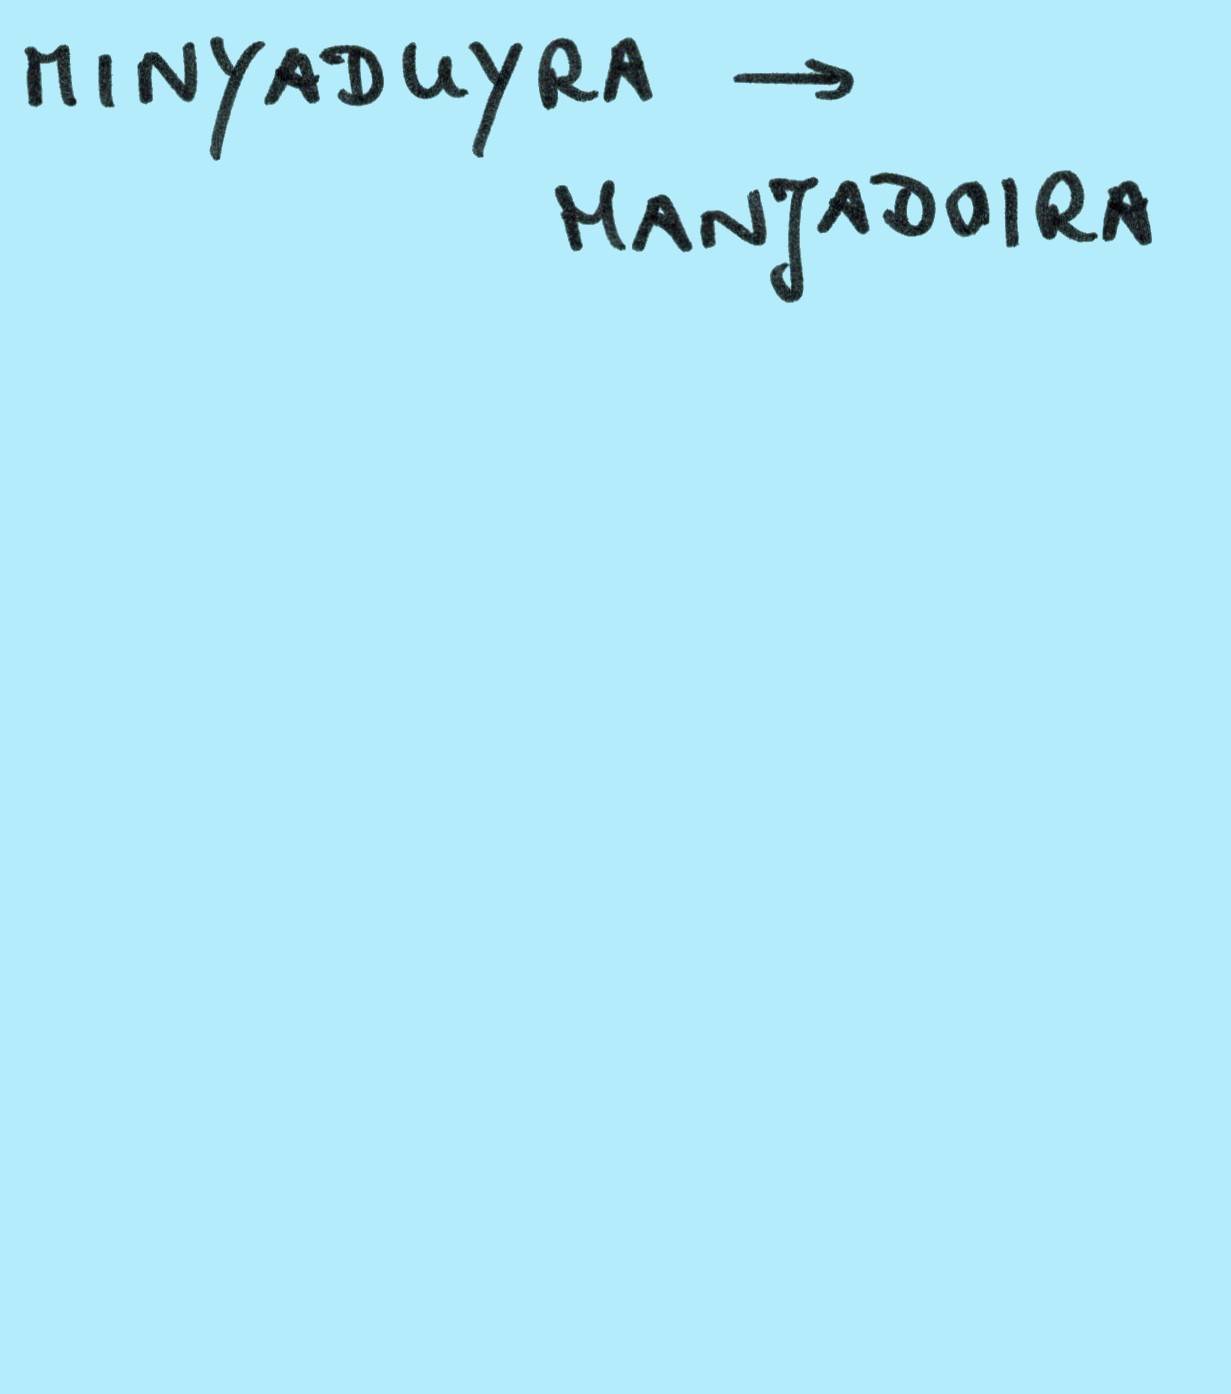 MINYADUYRA →
MANJADOIRA